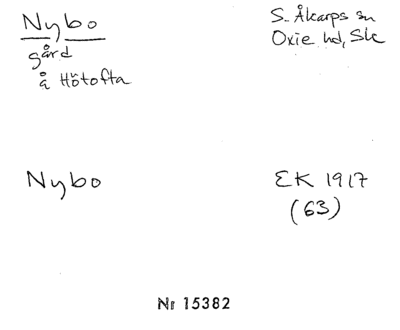 Nybo
S. Åkarps sn
gård
Oxie hd, Sk
å Hötofta
Nybo
EK 1917
(63)
Nr 15382